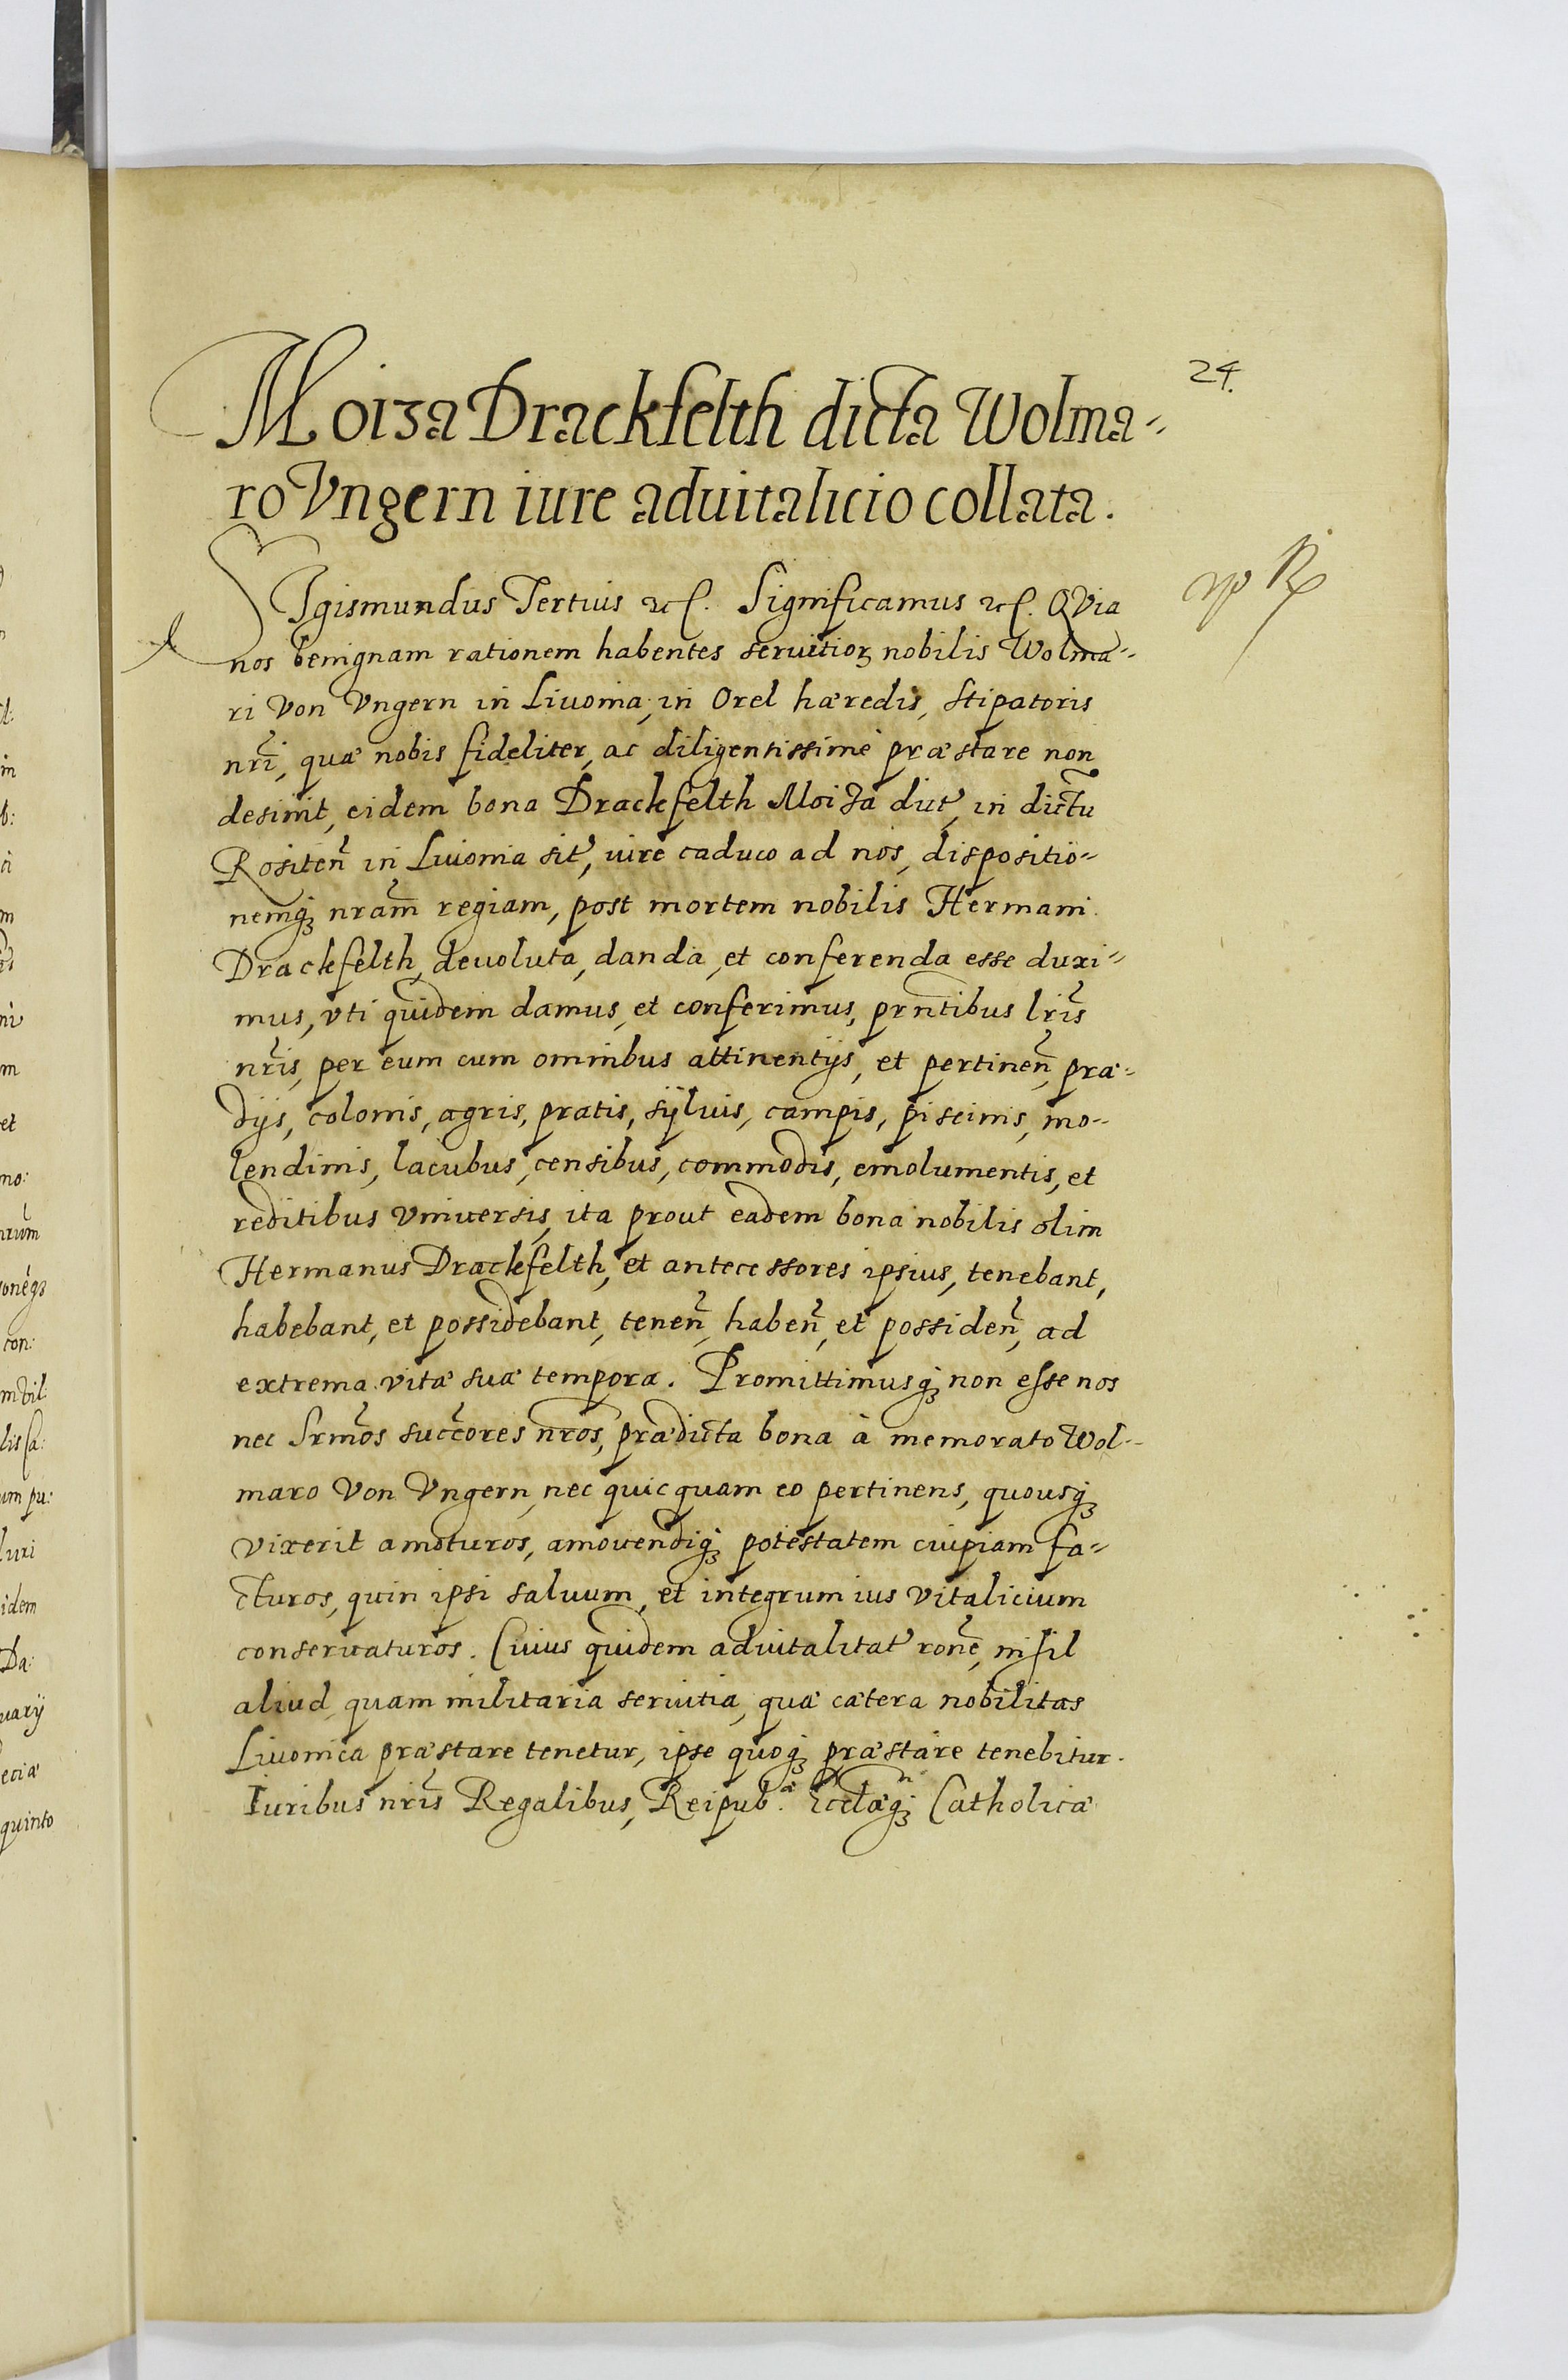 24.
Moiza Drackfelth dicta Wolma=
ro Vngern iure aduitalicio collata.
SIgismundus Tertius etc. Significamus etc. QVia
nos benignam rationem habentes seruitioꝝ nobilis Wolma=
ri Von Vngern in Liuonia, in Orel hæredis, stipatoris
nr̃i, quæ nobis fideliter, ac diligentissimè præstare non
desinit, eidem bona Drackfelth Moiza dict, in dictũ
Rositeñ in Liuonia sit, iure caduco ad nos, dispositio=
nemqꝫ nr̃am regiam, post mortem nobilis Hermani
Drackfelth, deuoluta, danda, et conferenda esse duxi=
mus, vti quidem damus, et conferimus, prñtibus lr̃is
nr̃is, per eum cum omnibus attinentijs, et pertineñ, præ=
dijs, colonis, agris, pratis, syluis, campis, piscinis, mo=
lendinis, lacubus, censibus, commodis, emolumentis, et
reditibus vniuersis, ita prout eadem bona nobilis olim
Hermanus Drackfelth, et antecessores ipsius, tenebant,
habebant, et possidebant, teneñ, habeñ, et possideñ, ad
extrema vitæ suæ tempora. Promittimusqꝫ non esse nos
nec Srm̃os succ̃ores nr̃os, prædicta bona à memorato Wol=
maro Von Vngern, nec quicquam eo pertinens, quousqꝫ
vixerit amoturos, amouendiqꝫ potestatem cuipiam fa=
cturos, quin ipsi saluum, et integrum ius vitalicium
conseruaturos. Cuius quidem aduitalitat rõne, nihil
aliud, quam militaria seruitia, quæ cætera nobilitas
Liuonica præstare tenetur, ipse quoqꝫ præstare tenebitur.
Iuribus nr̃is Regalibus, Reipub.æ Ecclæqꝫ Catholicæ